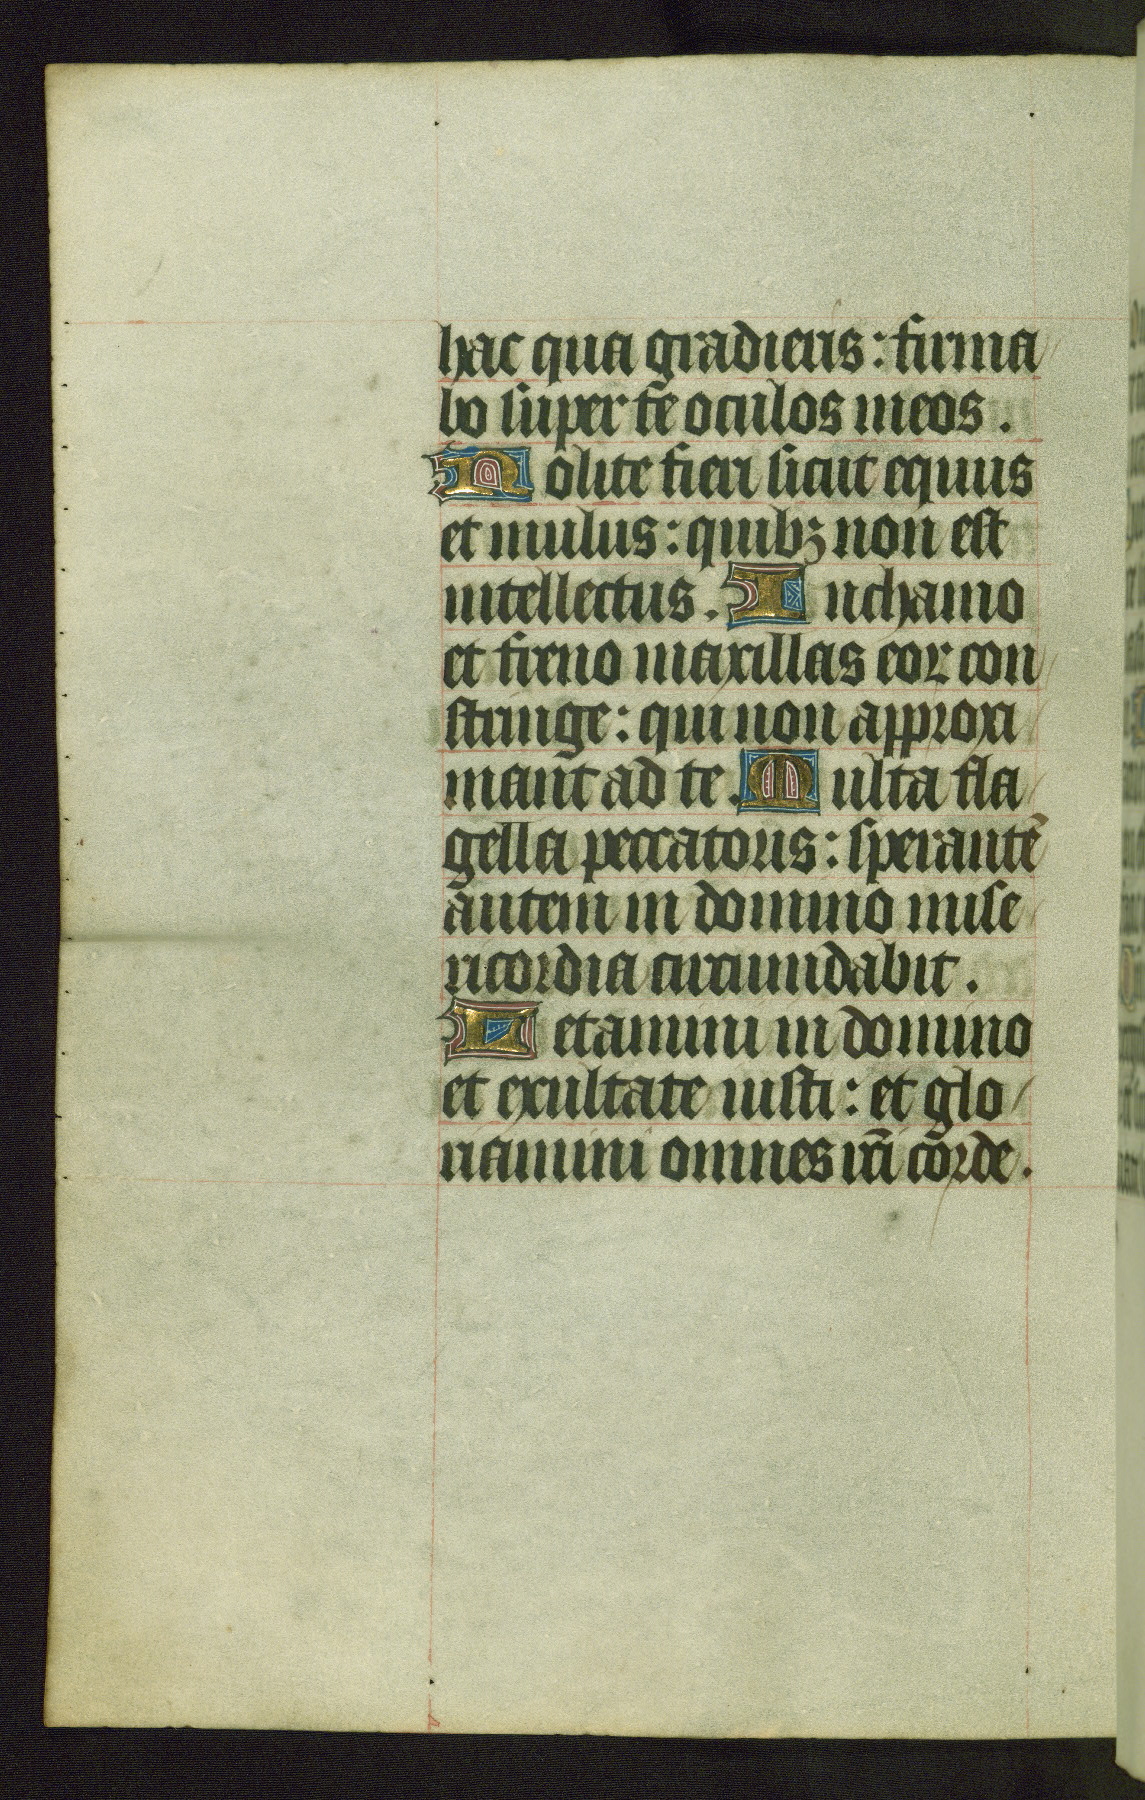 hac qua gradieris : firma
bo super te oculos meos .
Nolite fieri sicut equus
et mulus : quibꝫ non est
intellectus . In chamo
et freno maxillas eoꝝ con
stringe : qui non approxi
mant ad te . Multa fla
gella peccatoris : sperantē
autem in domino mise
ricordia circumdabit .
Letamini in domino
et exultate iusti : et glo
riamini omnes rc̄ti corde .